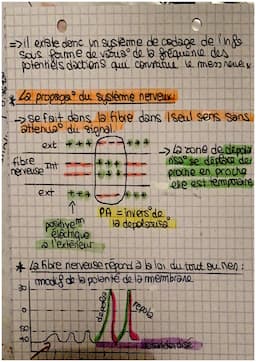 ⇒ il existe donc un système de codage de l'info
sous forme de variaº de la fréquence des
potentiels d'actions qui constitue le mess nerveux
* La propagaº du système nerveux
→ se fait dans la fibre dans 1 seul sens sans
atténuaº du signal.
ext
fibre
nerveuse
Int
ext
→ La zone de dépola
risaº se déplace de
proche en proche
elle est temporaire
PA = inversº de
la dépolarisaº
positivemt
électrique
à l'extérieur
* La fibre nerveuse répond à la loi du tout ou rien :
modif de la polarité de la membrane
30
0
50
dépola
repola